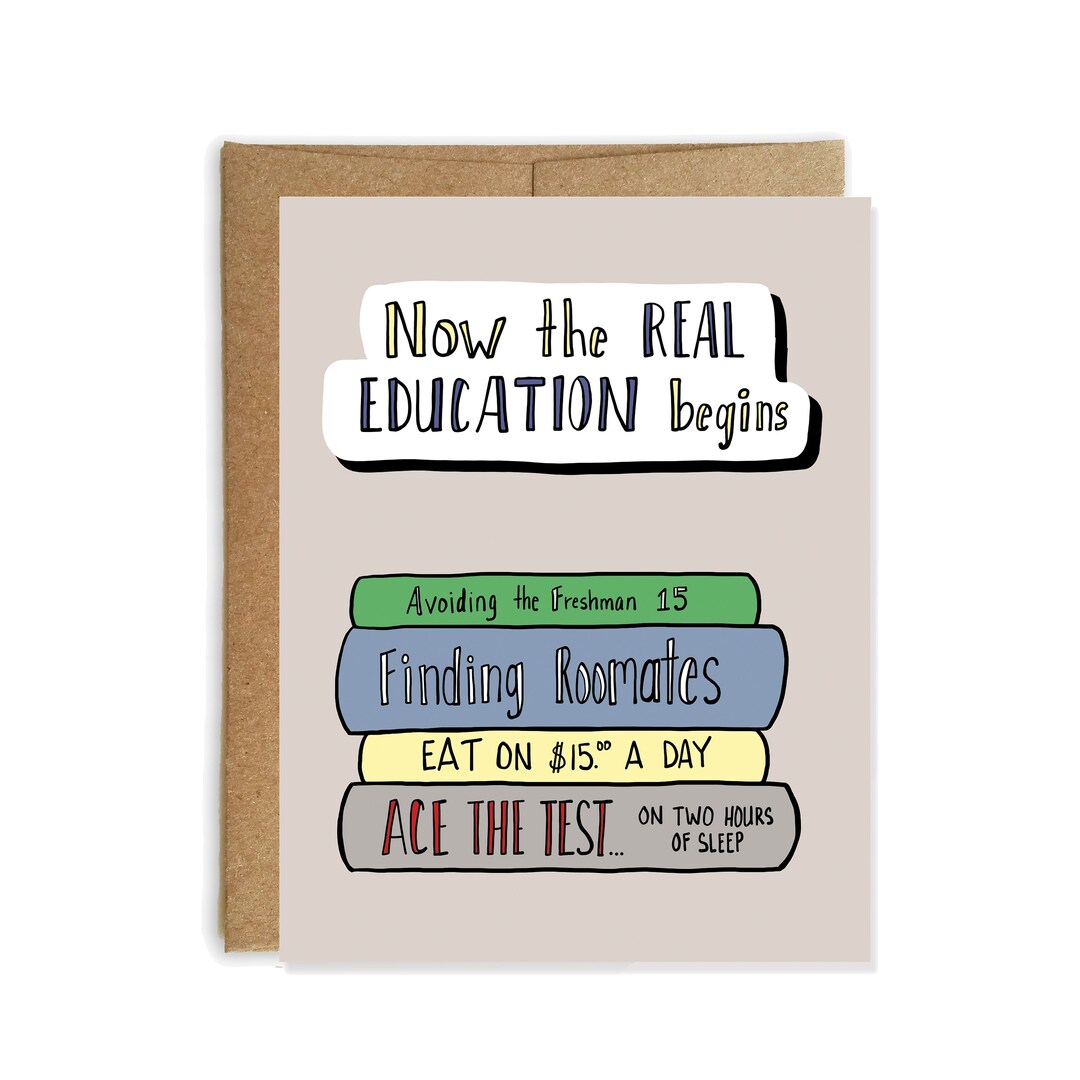 Now the REAL
EDUCATION begins
Avoiding the Freshman 15
Finding Roomates
EAT ON $15.00 A DAY
ACE THE TEST... ON TWO HOURS
OF SLEEP